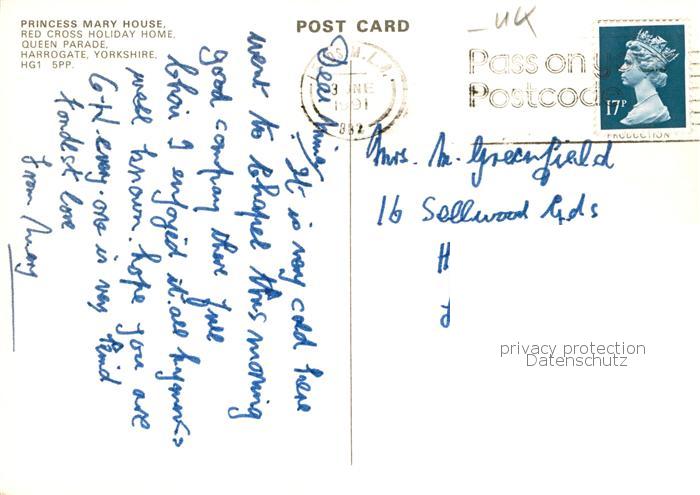 PRINCESS MARY HOUSE,
RED CROSS HOLIDAY HOME,
QUEEN PARADE,
HARROGATE, YORKSHIRE,
HG1 5PP.
POST CARD
UK
Pass on y
Postcode
1991
17P
Dear
It is very cold here
went to Chapel this morning
good company there full
Choir I enjoyed it. all hymns
well known. hope you are
every one is very kind
fondest love
from Mary
Mrs. M. Greenfield
16 Sellwood Gds
H
privacy protection
Datenschutz